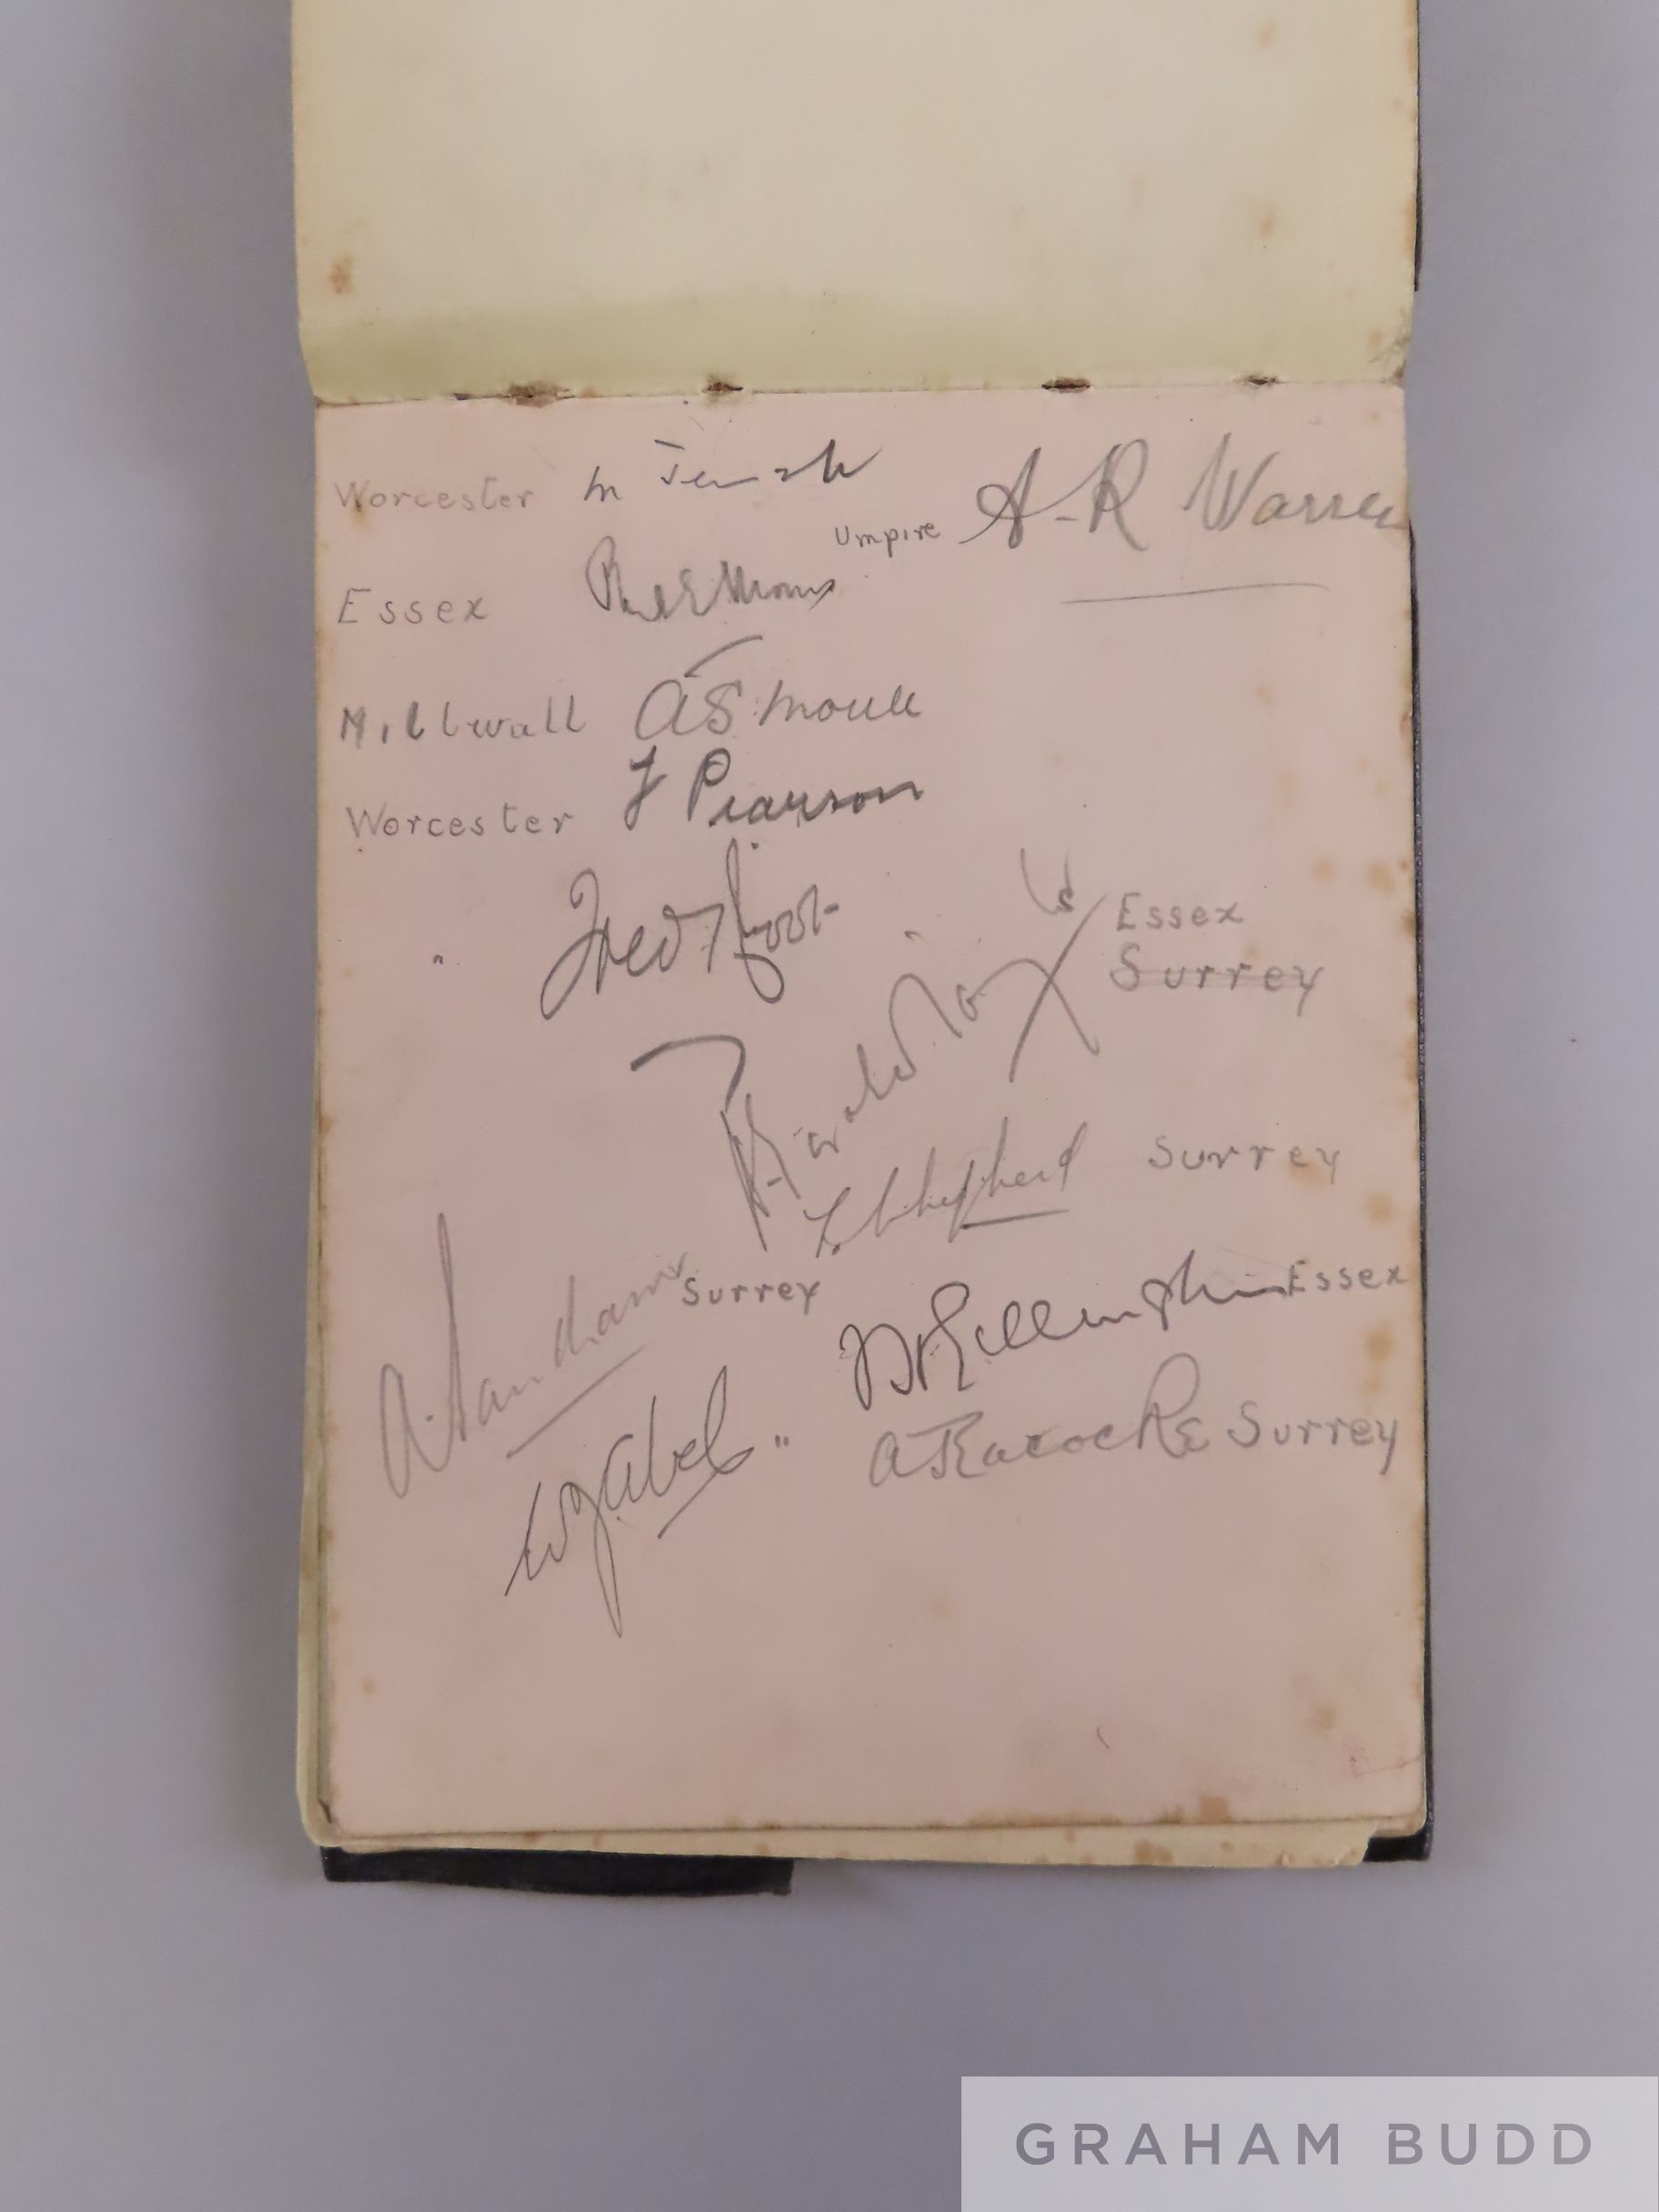 Worcester M Jewell
Umpire A-R Warren
Essex
Millwall AS Moule
Worcester F Pearson
" Fred Root
Essex
Surrey
Harold
Shepherd Surrey
A. Sandham Surrey
Essex
WJ Abel "
A Peacocke Surrey
GRAHAM BUDD